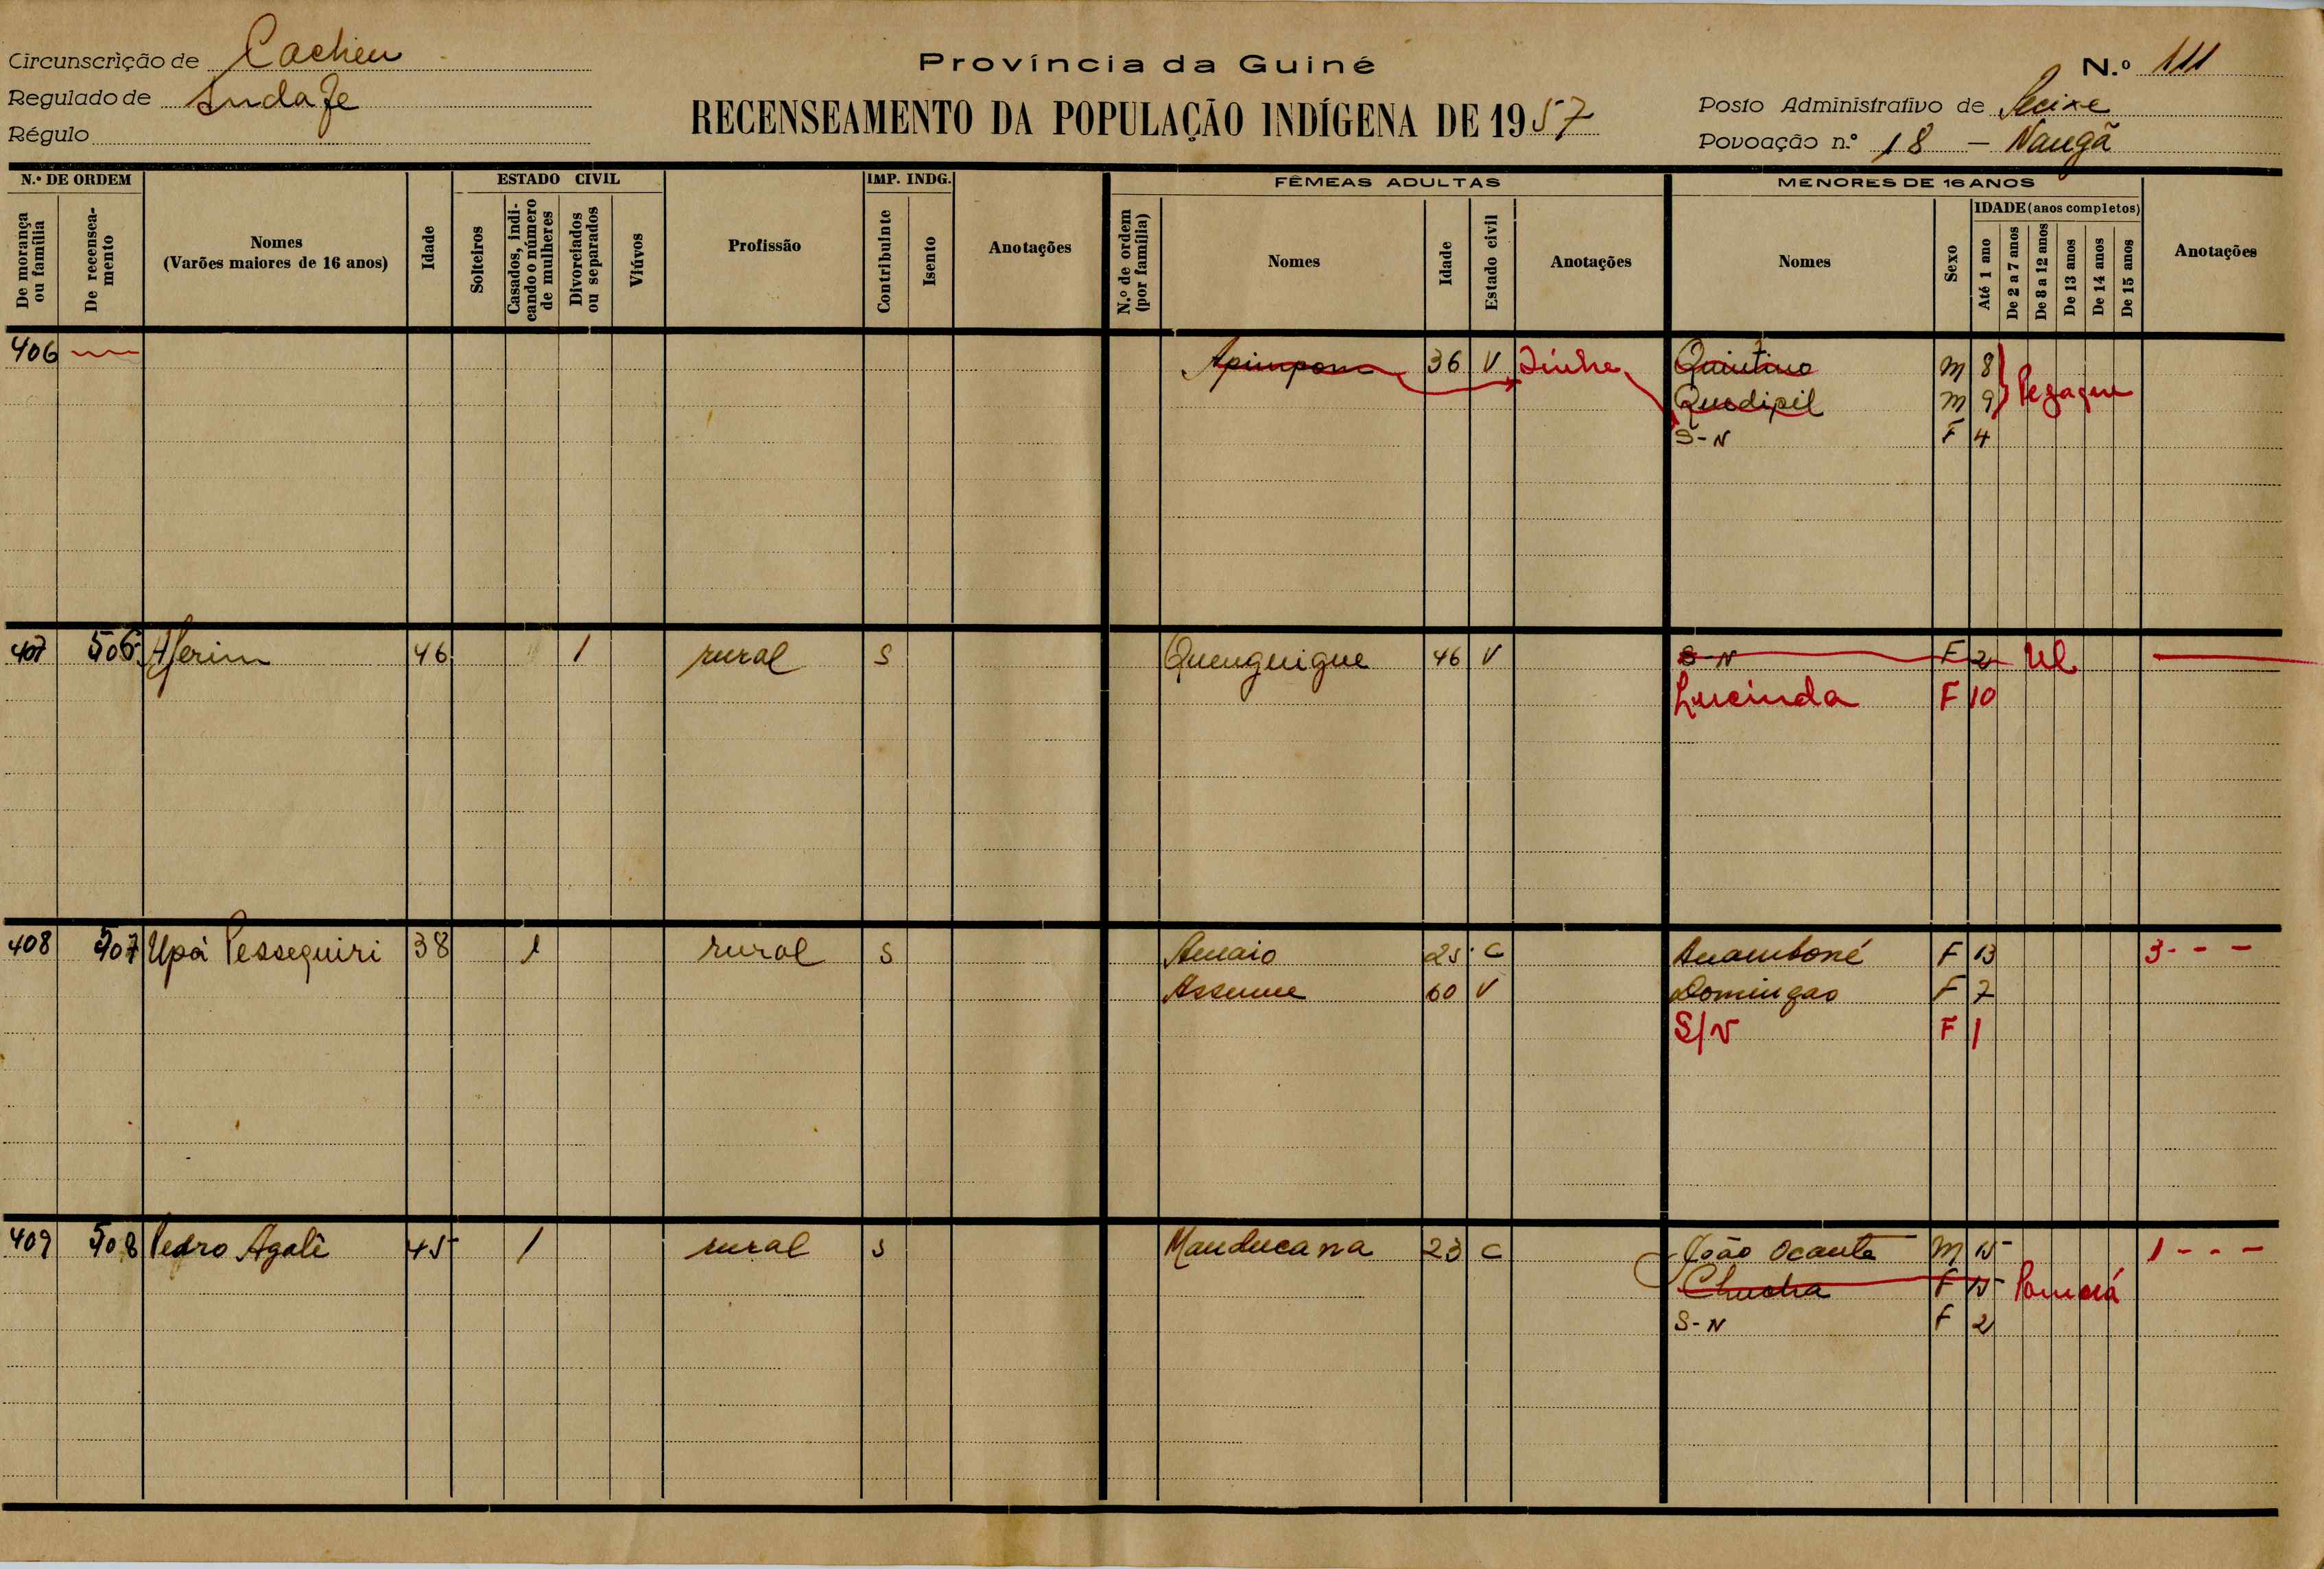 Circunscrição de Cacheu
Regulado de
Régulo
Província da Guiné
RECENSEAMENTO DA POPULAÇÃO INDÍGENA DE 1957
N.º 111
Posto Administrativo de
Povoação n.º 18 — Naugã
N.º DE ORDEM
De morança ou família
De recenseamento
Nomes
(Varões maiores de 16 anos)
Idade
ESTADO CIVIL
Solteiros
Casados, indicando o número de mulheres
Divorciados ou separados
Viúvos
Profissão
IMP. INDG.
Contribuinte
Isento
Anotações
FÊMEAS ADULTAS
N.º de ordem (por família)
Nomes
Idade
Estado civil
Anotações
MENORES DE 16 ANOS
Nomes
Sexo
IDADE (anos completos)
Até 1 ano
De 2 a 7 anos
De 8 a 12 anos
De 13 anos
De 14 anos
De 15 anos
Anotações
406 Apimpona 36 V Quintino M 8
M 9
S-N F 4
407 506 46 1 rural S Quenguigue 46 V S-N F 2
Lucinda F 10
408 507 Upá Pessequiri 38 1 rural S Amaio 25 C Anamboné F 13 3 - - -
60 V Domingas F 7
S/N F 1
409 508 Pedro Agalê 45 1 rural S Manducana 23 C João Ocante M 15 1 - - -
F 15
S-N F 2